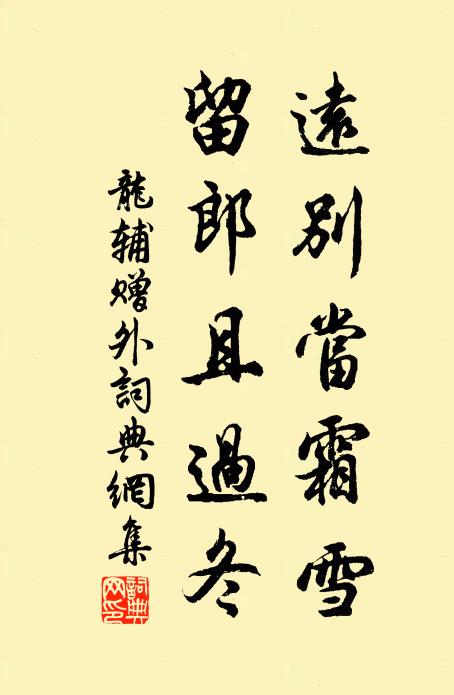 遠別當霜雪
留郎且過冬
龍輔贈外詞典網集
詞典网印